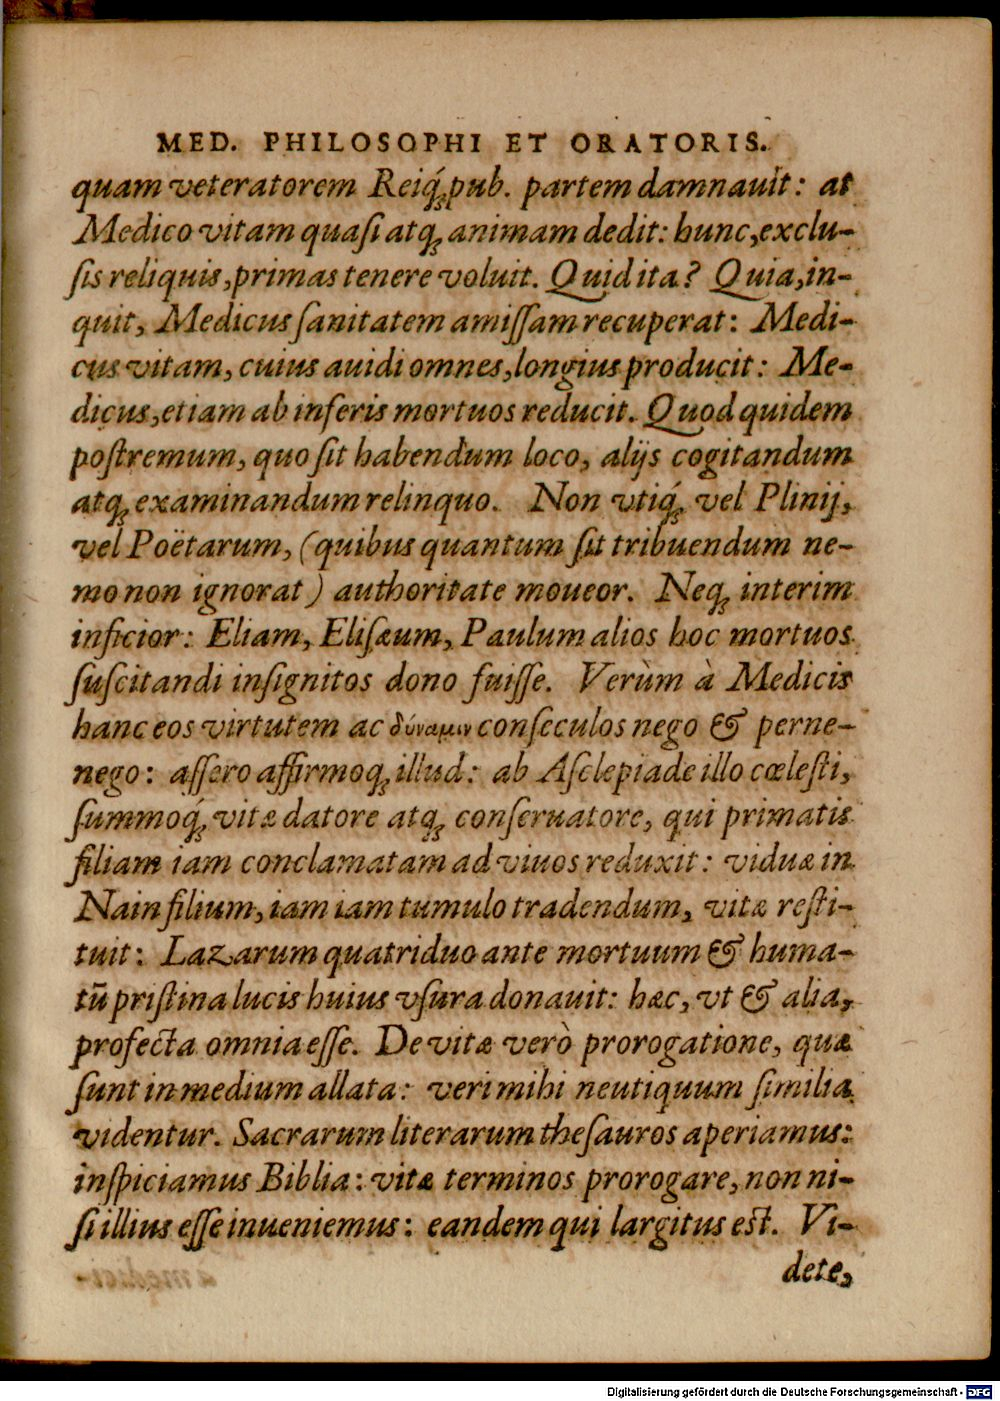 MED. PHILOSOPHI ET ORATORIS.
quam veteratorem Reiq́ꝫ pub. partem damnauit: at
Medico vitam quaſi atqꝫ animam dedit: hunc, exclu-
ſis reliquis, primas tenere voluit. Quid ita? Quia, in-
quit, Medicus ſanitatem amiſſam recuperat: Medi-
cus vitam, cuius auidi omnes, longius producit: Me-
dicus, etiam ab inferis mortuos reducit. Quod quidem
poſtremum, quo ſit habendum loco, alijs cogitandum
atqꝫ examinandum relinquo. Non vtiq́ꝫ vel Plinij,
vel Poëtarum, (quibus quantum ſit tribuendum ne-
mo non ignorat) authoritate moueor. Neqꝫ interim
inficior: Eliam, Eliſæum, Paulum alios hoc mortuos
ſuſcitandi inſignitos dono fuiſſe. Verùm à Medicis
hanc eos virtutem ac δύναμιν conſeculos nego & perne-
nego: aſſero affirmoqꝫ illud: ab Aſclepiade illo cœleſti,
ſummoq́ꝫ vitæ datore atqꝫ conſeruatore, qui primatis
filiam iam conclamatam ad viuos reduxit: viduæ in
Nain filium, iam iam tumulo tradendum, vitæ reſti-
tuit: Lazarum quatriduo ante mortuum & huma-
tū priſtina lucis huius vſura donauit: hæc, vt & alia,
profecta omnia eſſe. De vitæ verò prorogatione, quæ
ſunt in medium allata: veri mihi neutiquum ſimilia
videntur. Sacrarum literarum theſauros aperiamus:
inſpiciamus Biblia: vitæ terminos prorogare, non ni-
ſi illius eſſe inueniemus: eandem qui largitus eſt. Vi-
dete,
Digitalisierung gefördert durch die Deutsche Forschungsgemeinschaft - DFG